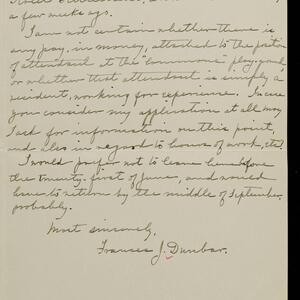 a few weeks ago.
I am not certain whether there is
any pay, in money, attached to the position
of attendant at the "commons" playground,
or whether that attendant is simply a
resident, working for experience. In case
you consider my application at all may
I ask for information on this point,
and also in regard to hours of work, etc?
I would prefer not to leave here before
the twenty-first of June, and would
have to return by the middle of September
probably.
Most sincerely,
Frances J. Dunbar.